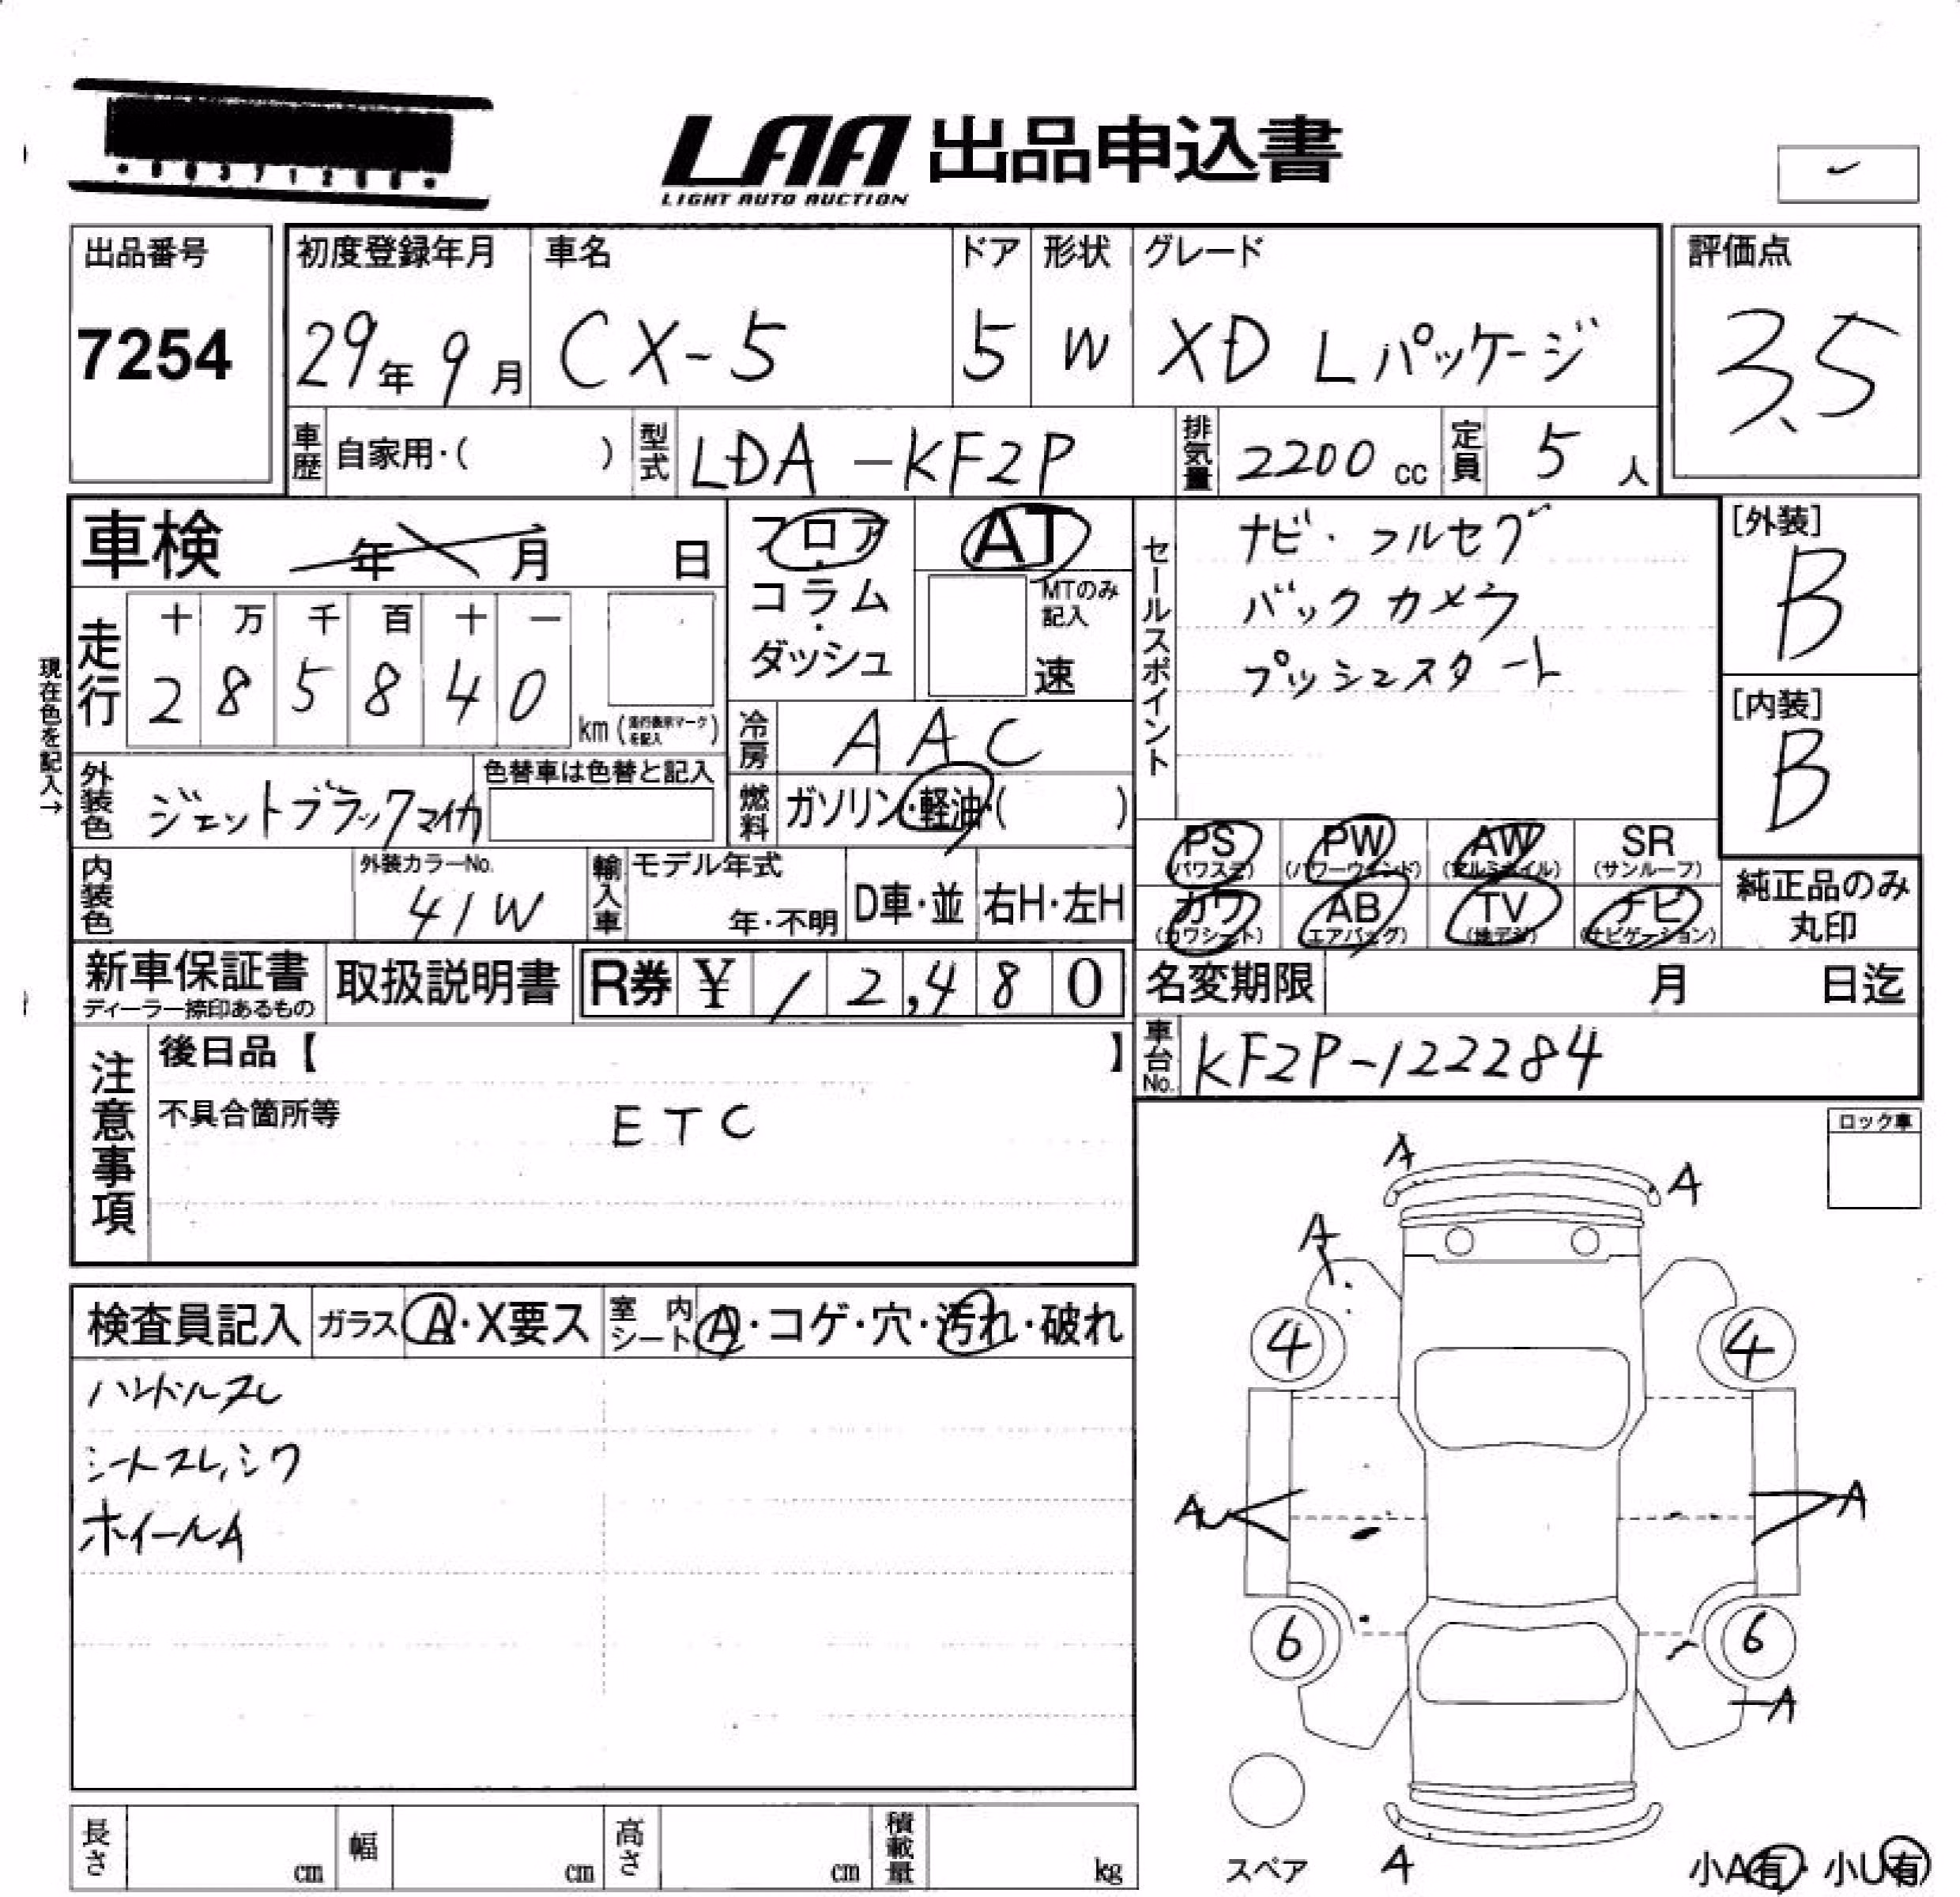 LAA 出品申込書
LIGHT AUTO AUCTION
出品番号
7254
初度登録年月
29年9月
車名
CX-5
ドア
5
形状
W
グレード
XD Lパッケージ
評価点
3.5
車歴 自家用・( )
型式 LDA-KF2P
排気量 2200 cc
定員 5 人
車検 年 月 日
現在色を記入→
走行
十 万 千 百 十 一
2 8 5 8 4 0
km (走行表示マークを記入)
フロア・
コラム・
ダッシュ
AT
MTのみ記入
速
冷房 AAC
燃料 ガソリン・軽油・( )
外装色 ジェットブラックマイカ
色替車は色替と記入
内装色
外装カラーNo.
41W
輸入車
モデル年式
年・不明
D車・並
右H・左H
セールスポイント
ナビ・フルセグ
バックカメラ
プッシュスタート
[外装]
B
[内装]
B
PS (パワステ)
PW (パワーウィンド)
AW (アルミホイル)
SR (サンルーフ)
カワ (カワシート)
AB (エアバッグ)
TV (地デジ)
ナビ (ナビゲーション)
純正品のみ
丸印
新車保証書
ディーラー捺印あるもの
取扱説明書
R券 ¥ 12,480
名変期限 月 日迄
車台No. KF2P-122284
注意事項
後日品【 】
不具合箇所等
ETC
ロック車
検査員記入
ガラス A・X要ス
室内シート A・コゲ・穴・汚れ・破れ
ハンドルスレ
シートスレ,シワ
ホイールA
A
A
A
4
4
A
A
6
6
A
A
スペア
小A有・小U有
長さ cm
幅 cm
高さ cm
積載量 kg